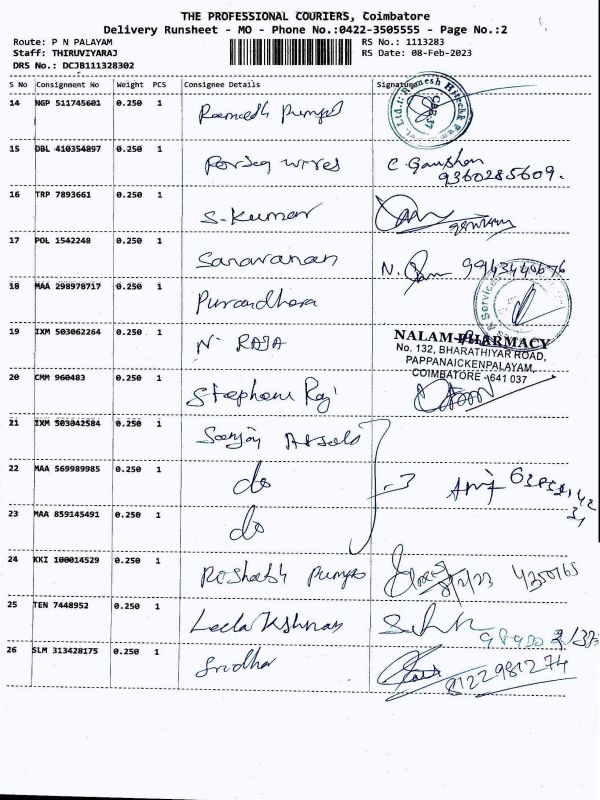 THE PROFESSIONAL COURIERS, Coimbatore
Delivery Runsheet - MO - Phone No.:0422-3505555 - Page No.:2
Route: P N PALAYAM
Staff: THIRUVIYARAJ
DRS No.: DCJB111328302
RS No.: 1113283
RS Date: 08-Feb-2023
S No Consignment No Weight PCS Consignee Details Signature
14 NGP 511745601 0.250 1 Ramesh Pumps
15 DBL 410354897 0.250 1 wires C. Ganeshan
9360285609.
16 TRP 7893661 0.250 1 S. Kumar
17 POL 1542248 0.250 1 Saravanan N.
18 MAA 298978717 0.250 1 Purandhara
19 IXM 503062264 0.250 1 N. RAJA
NALAM PHARMACY
No. 132, BHARATHIYAR ROAD,
PAPPANAICKENPALAYAM,
COIMBATORE - 641 037
20 CMM 960483 0.250 1 Stephen Raj
21 IXM 503042584 0.250 1 Sanjay
22 MAA 569989985 0.250 1 do
23 MAA 859145491 0.250 1 do
24 KKI 100014529 0.250 1 Pumps 8/2/23 4350165
25 TEN 7448952 0.250 1 Leela Kshnan
26 SLM 313428175 0.250 1 Sridhar
8122981274